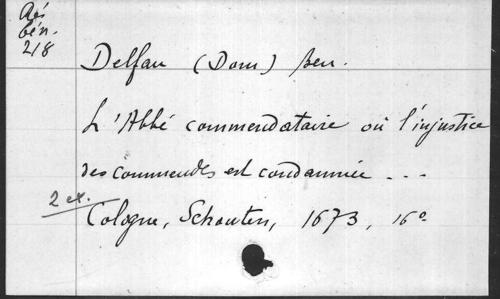 Rés
bén.
218
Delfau (Dom) ben.
L'Abbé commendataire où l'injustice
des commendes est condamnée ...
2 ex.
Cologne, Schouten, 1673, 16°